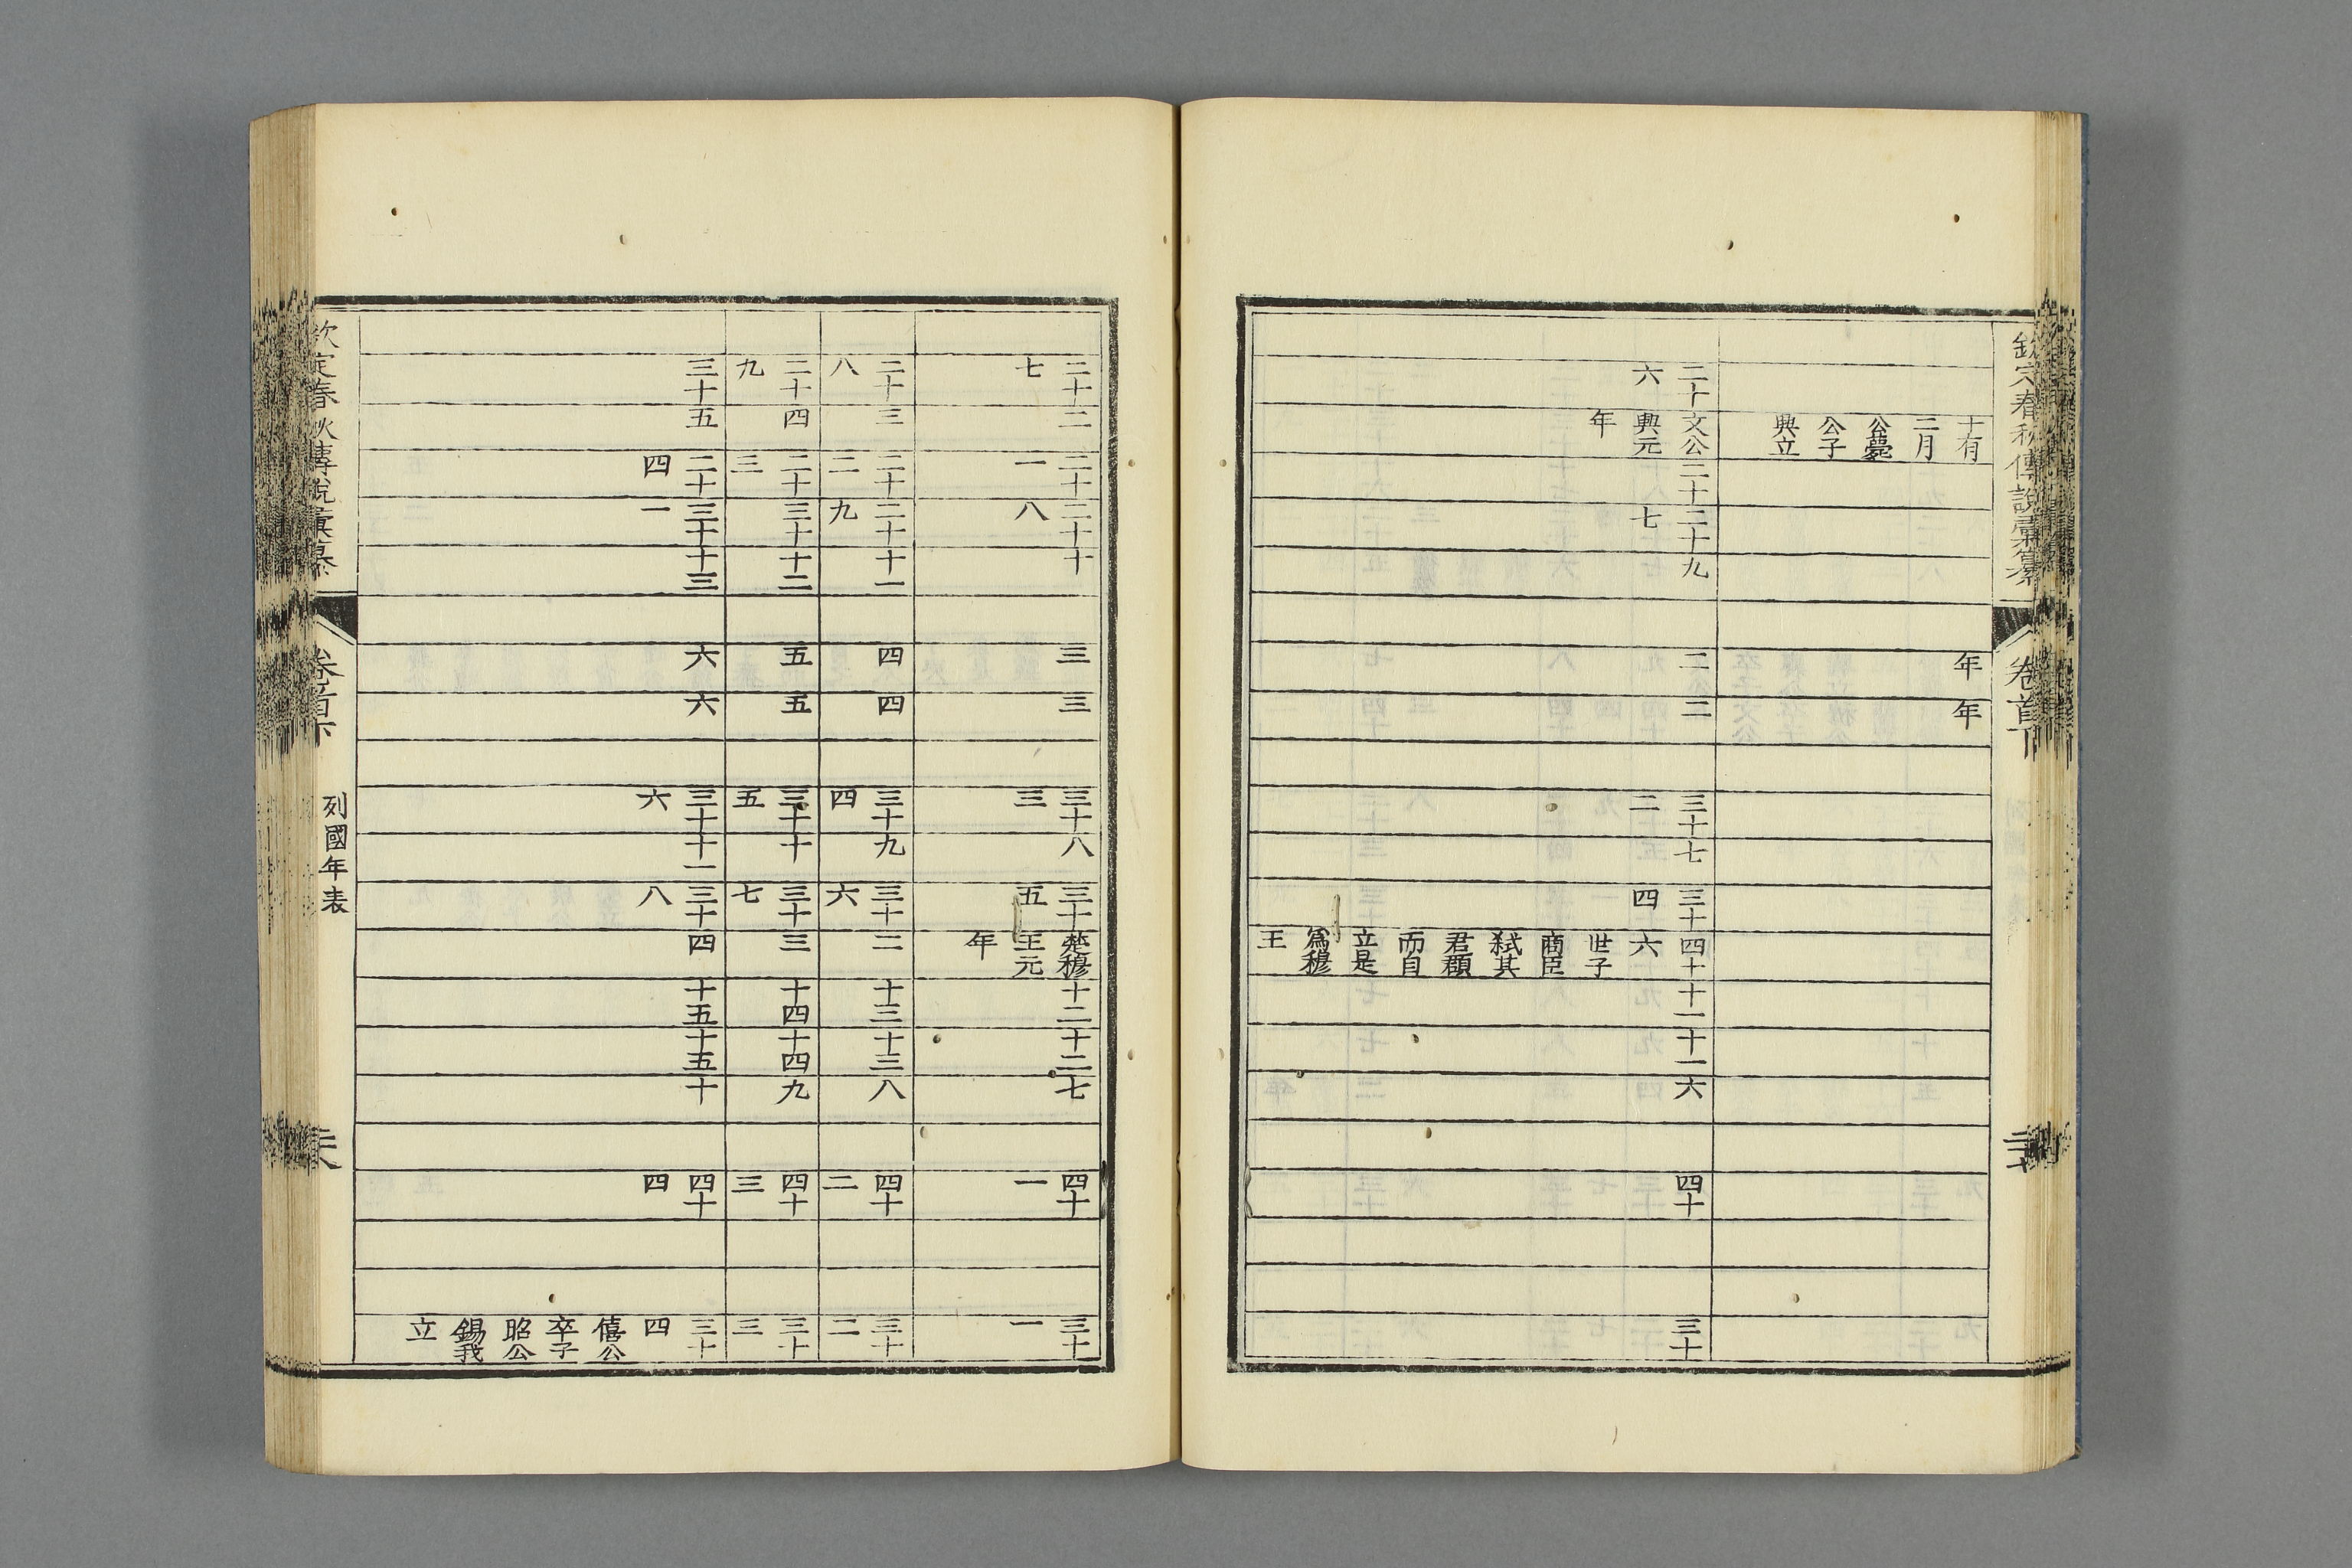 欽定春秋傳說彙纂 卷首下
十有
二月
公薨
公子
興立
年
年
二十
六
文公
興元
年
二十
二十
七
九
二
二
三十
二
七
三十
四
四十
六
世子
商臣
弑其
君頵
而自
立是
爲穆
王
十一
十一
六
四十
三十
二十
七
二
二十
一
二十
八
十
三
三
三十
三
八
三十
五
楚穆
王元
年
十二
十二
七
四十
一
三十
一
二十
八
三
二十
二
二十
九
十一
四
四
三十
四
九
三十
六
二
十三
十三
八
四十
二
三十
二
二十
九
四
二十
三
三十
十二
五
五
三十
五
十
三十
七
三
十四
十四
九
四十
三
三十
三
三十
五
二十
四
三十
一
十三
六
六
三十
六
十一
三十
八
四
十五
十五
十
四十
四
三十
四
僖公
卒子
昭公
錫我
立
欽定春秋傳說彙纂 卷首下 列國年表